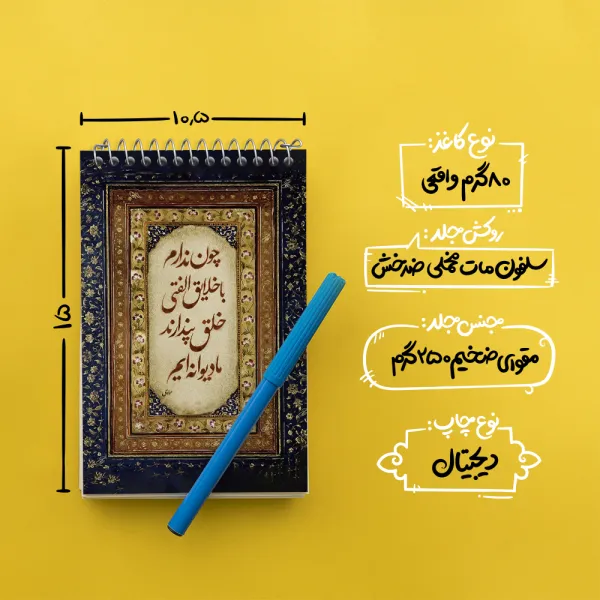 ۱۰٫۵
۱۵
چون ندارم
با خلایق الفتی
خلق پندارند
ما دیوانه ایم
نوع کاغذ:
۸۰ گرم واقعی
روکش جلد:
سلفون مات مخملی ضدخش
جنس جلد:
مقوای ضخیم ۲۵۰ گرم
نوع چاپ:
دیجیتال